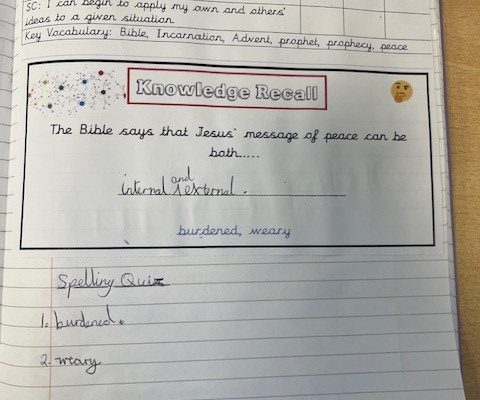 SC: I can begin to apply my own and others'
ideas to a given situation.
Key Vocabulary: Bible, Incarnation, Advent, prophet, prophecy, peace
Knowledge Recall
The Bible says that Jesus' message of peace can be
both.....
and
internal external.
burdened, weary
Spelling Quiz
1. burdened.
2. weary